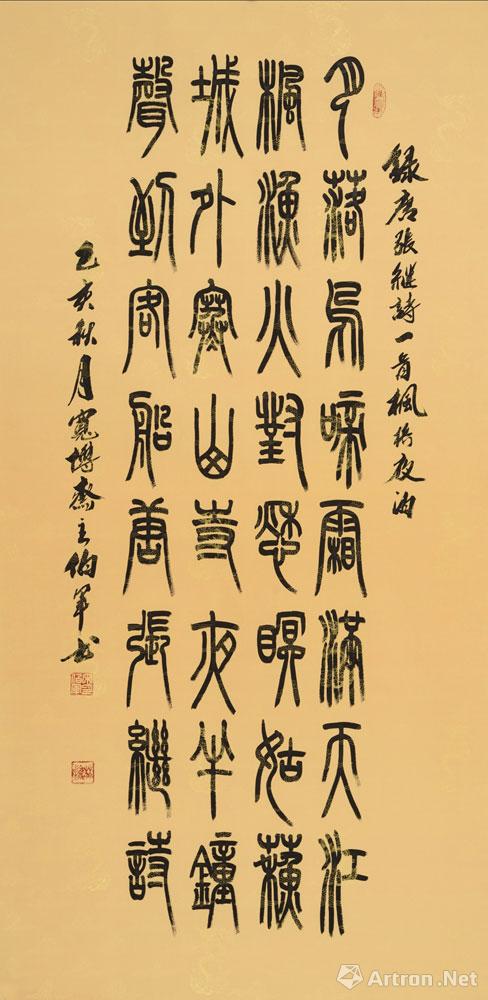 錄唐張繼詩一首楓橋夜泊
月落烏啼霜滿天江
楓漁火對愁眠姑蘇
城外寒山寺夜半鐘
聲到客船唐張繼詩
己亥秋月寬博齋主伯軍书
Artron.Net